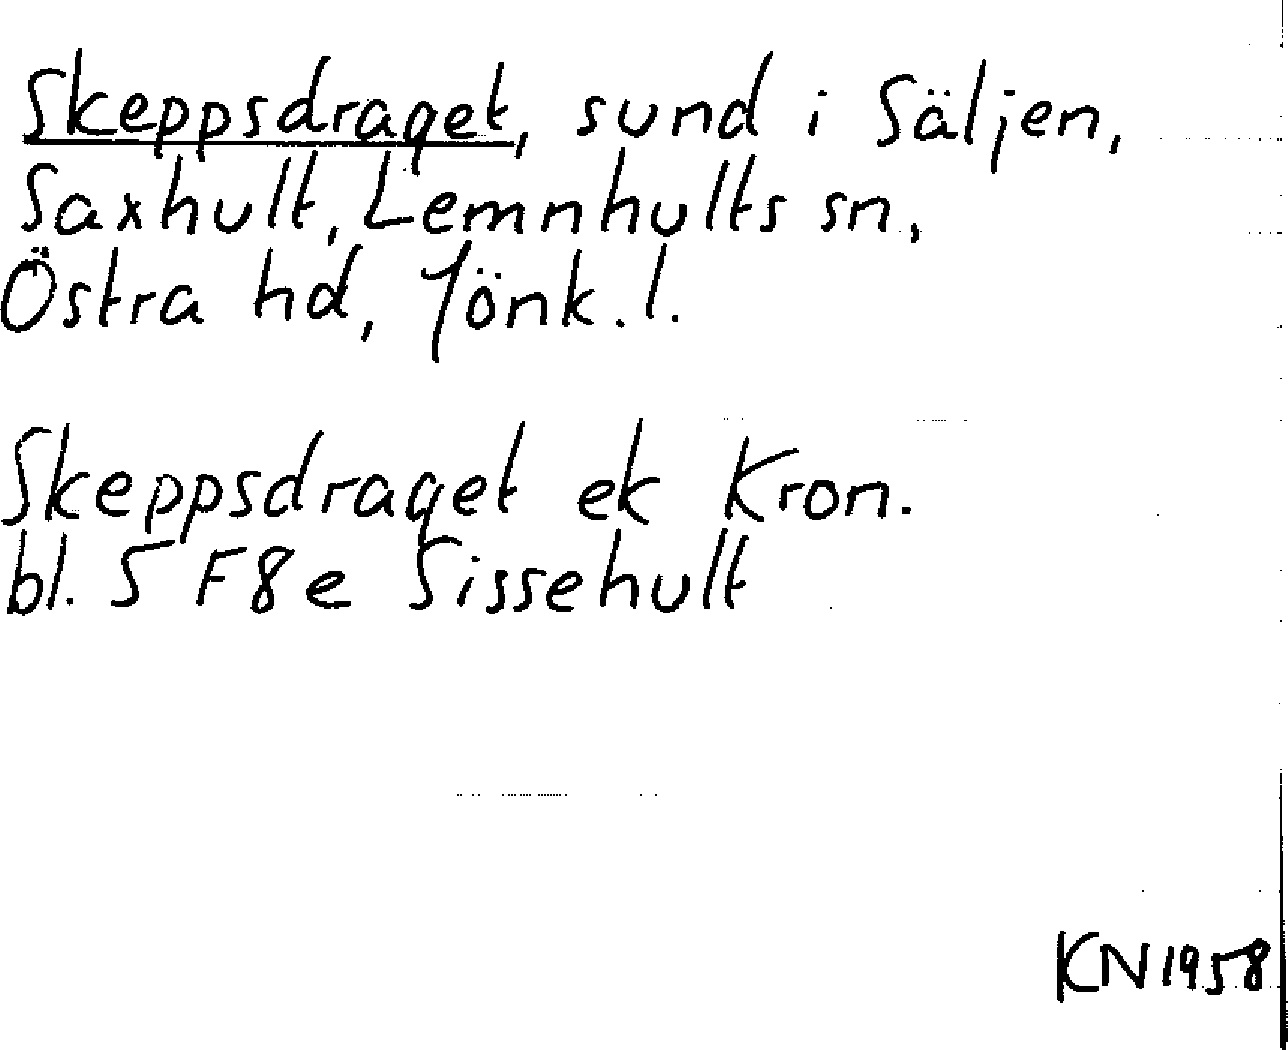 Skeppsdraget, sund i Säljen,
Saxhult, Lemnhults sn.,
Östra hd, Jönk.l.
Skeppsdraget ek Kron.
bl. 5 F8e Sissehult
KN1958